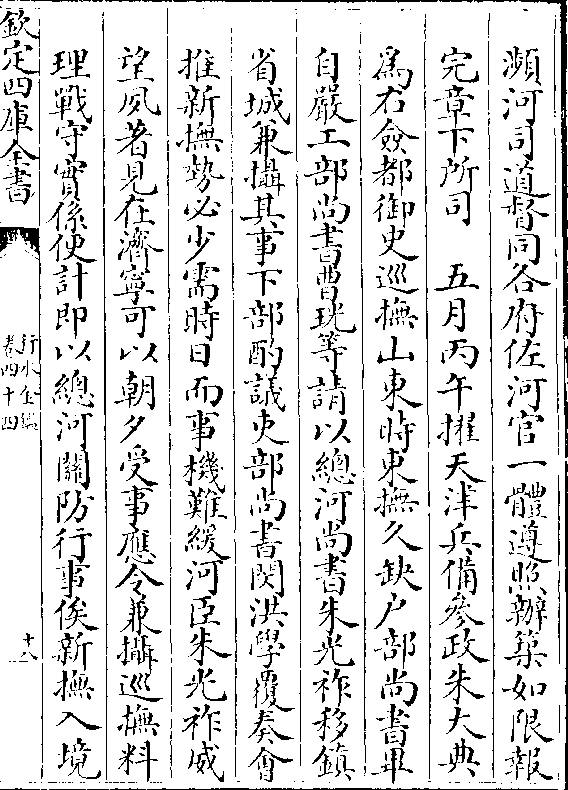 瀕河司道督同各府佐河官一體遵照辦築如限報
完章下所司　五月丙午擢天津兵備參政朱大典
為右僉都御史巡撫山東時東撫久缺户部尚書畢
自嚴工部尚書曹珖等請以總河尚書朱光祚移鎮
省城兼攝其事下部酌議吏部尚書閔洪學覆奏會
推新撫勢必少需時日而事機難緩河臣朱光祚威
望夙著見在濟寧可以朝夕受事應令兼攝巡撫料
理戰守實係便計即以總河關防行事俟新撫入境
欽定四庫全書
行水金鑑
卷四十四
十八